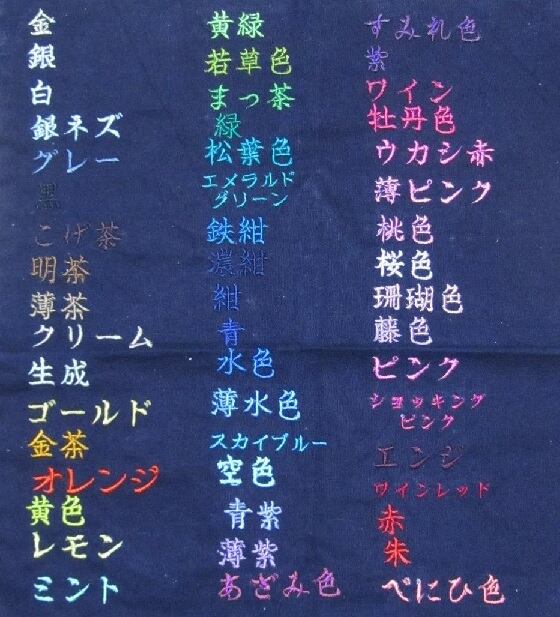 金
銀
白
銀ネズ
グレー
黒
こげ茶
明茶
薄茶
クリーム
生成
ゴールド
金茶
オレンジ
黄色
レモン
ミント
黄緑
若草色
まっ茶
緑
松葉色
エメラルド
グリーン
鉄紺
濃紺
紺
青
水色
薄水色
スカイブルー
空色
青紫
薄紫
あざみ色
すみれ色
紫
ワイン
牡丹色
ウカシ赤
薄ピンク
桃色
桜色
珊瑚色
藤色
ピンク
ショッキング
ピンク
エンジ
ワインレッド
赤
朱
べにひ色